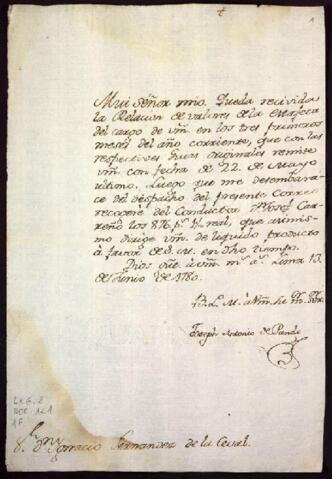 1
Mui Señor mio. Queda recivida
la Relacion de valores de la estafeta
del cargo de vm. en los tres primeros
meses del año corriente, que con las
respectivas Guias originales remite
vm. con fecha de 22. de Mayo
ultimo. Luego que me desembara-
ce del despacho del presente Correo
recogeré del Conductor Josef Car-
reño los 876 p.s real, que asimismo
dirige vm. de liquido producto
à favor de S. M. en dho tiempo.
Dios gue. à vm. m.s a.s Lima 13
de Junio de 1780.
B. L. M. à Vm. su
Joseph Antonio de Pando
LEG. 2
DOC 121
1F.
S.or Dn Fernandez de la Ceval.